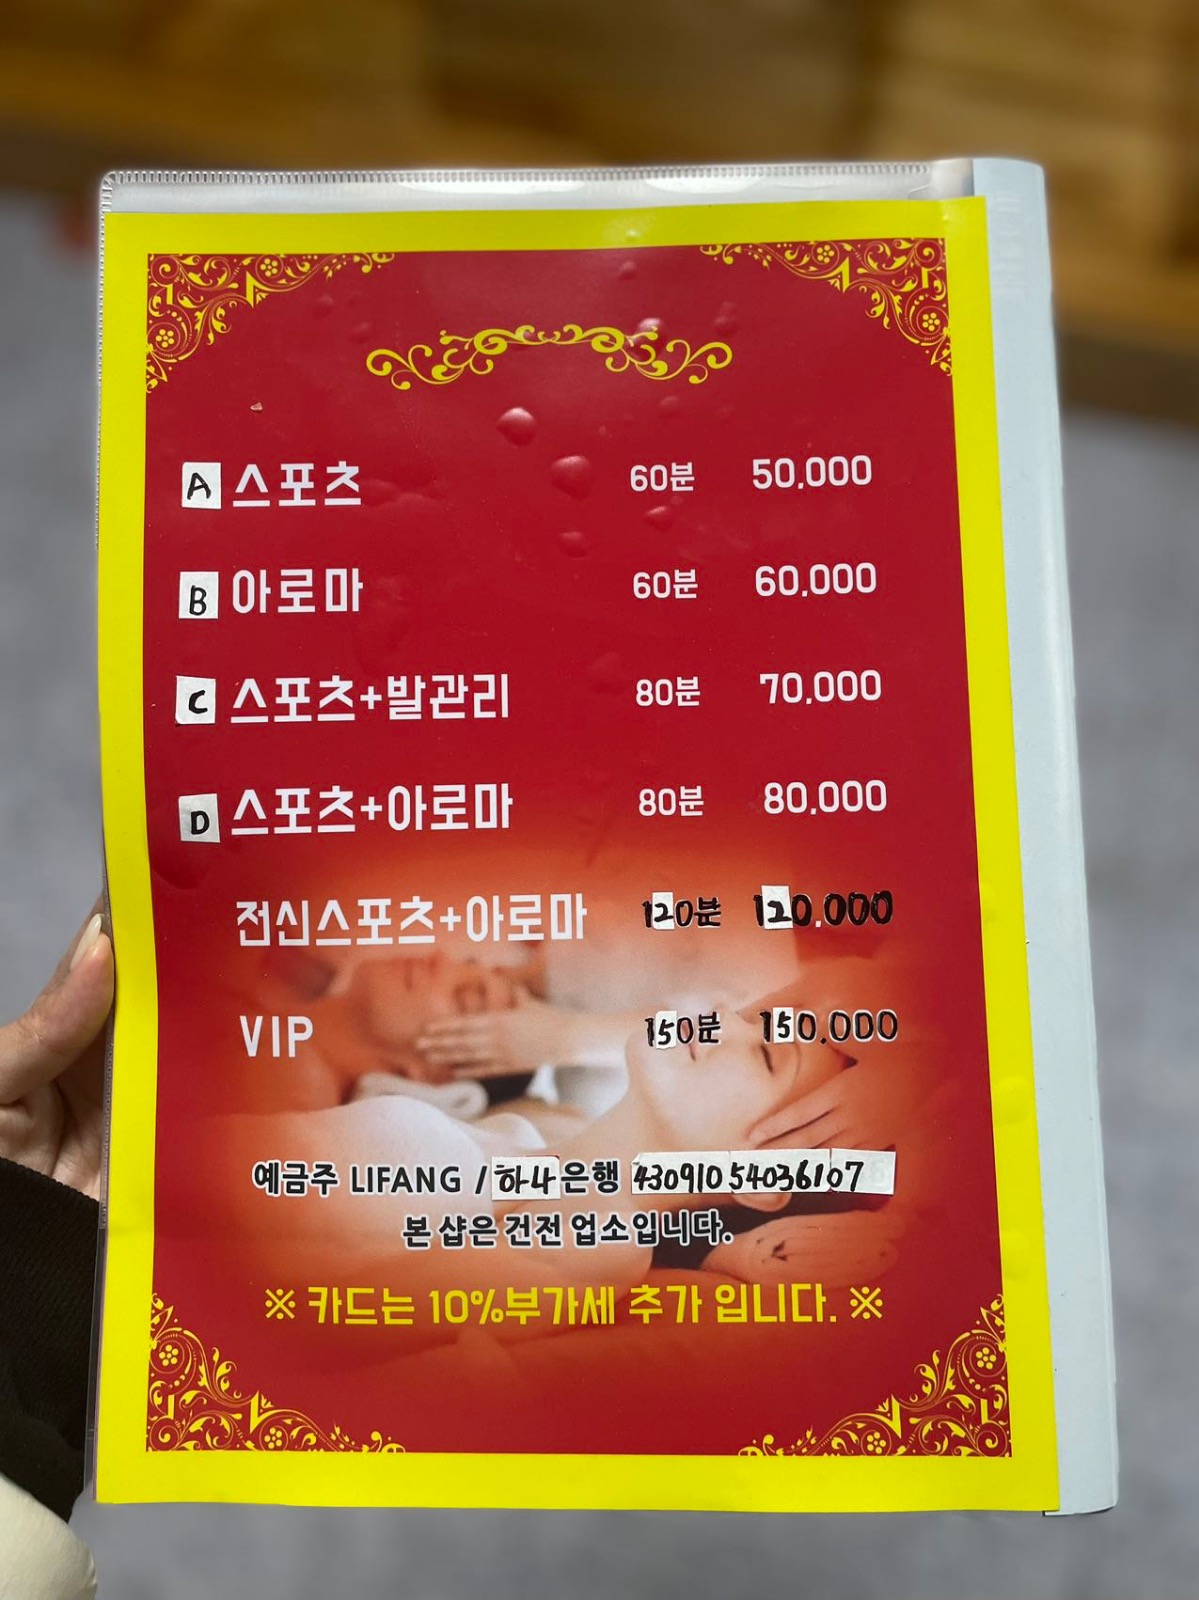 A 스포츠 60분 50,000
B 아로마 60분 60,000
C 스포츠+발관리 80분 70,000
D 스포츠+아로마 80분 80,000
전신스포츠+아로마 120분 120,000
VIP 150분 150,000
예금주 LIFANG / 하나은행 43091054036107
본 샵은 건전 업소입니다.
※ 카드는 10%부가세 추가 입니다. ※